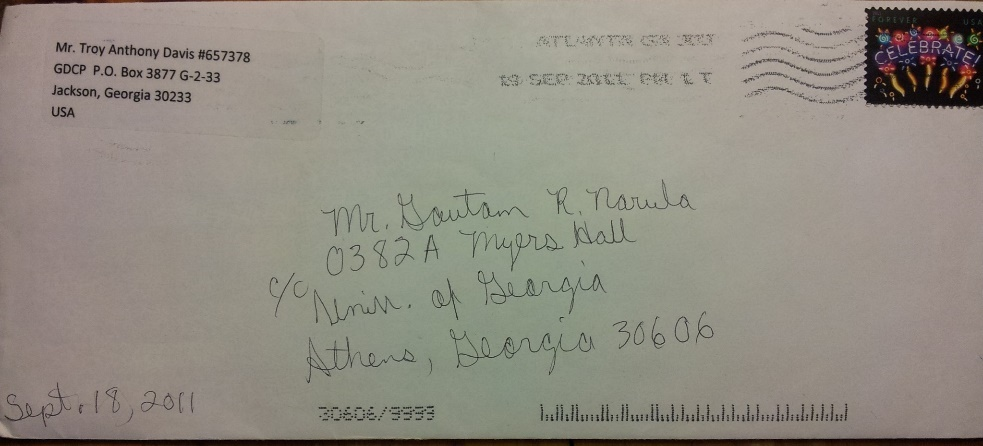 Mr. Troy Anthony Davis #657378
GDCP P.O. Box 3877 G-2-33
Jackson, Georgia 30233
USA
ATLANTA GA 303
19 SEP 2011 PM 1 T
FOREVER USA
CELEBRATE!
Mr. Gautam R. Narula
0382A Myers Hall
c/o Univ. of Georgia
Athens, Georgia 30606
Sept. 18, 2011
30606/9999